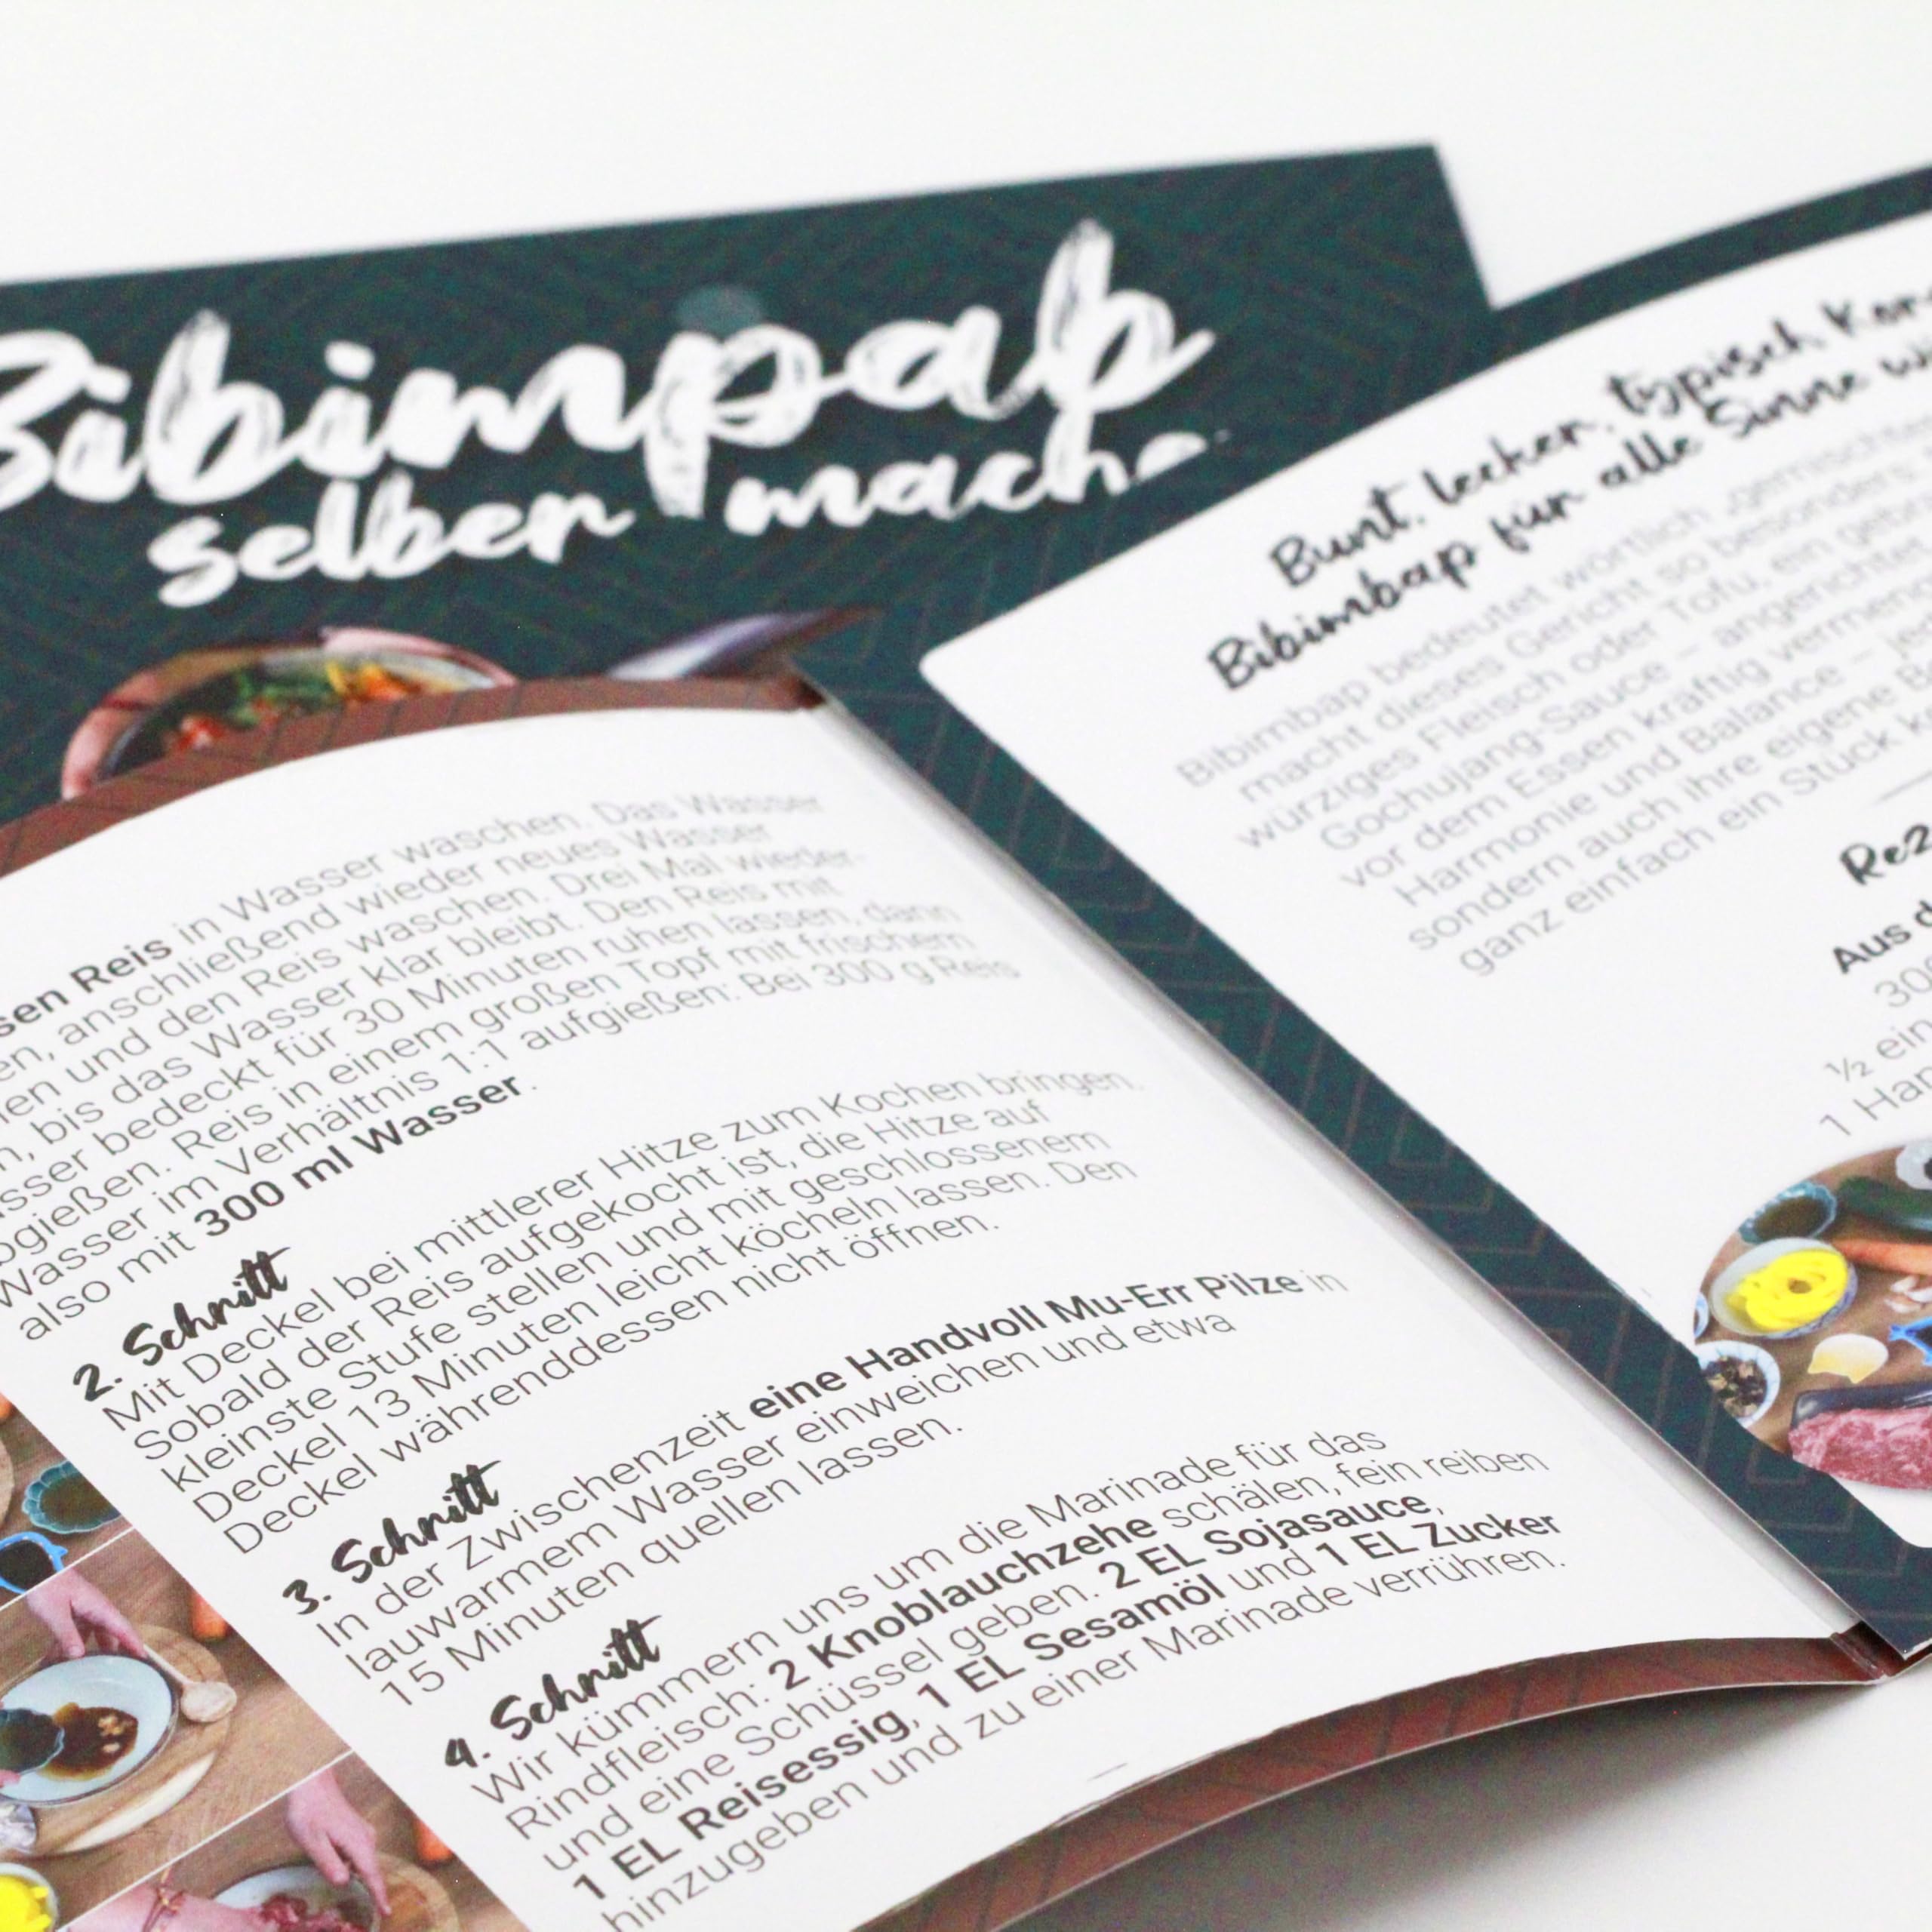 Bibimpab
selber mache
sen Reis in Wasser waschen. Das Wasser
en, anschließend wieder neues Wasser
en und den Reis waschen. Drei Mal wieder-
n, bis das Wasser klar bleibt. Den Reis mit
sser bedeckt für 30 Minuten ruhen lassen, dann
gießen. Reis in einem großen Topf mit frischem
Wasser im Verhältnis 1:1 aufgießen: Bei 300 g Reis
also mit 300 ml Wasser.
2. Schritt
Mit Deckel bei mittlerer Hitze zum Kochen bringen.
Sobald der Reis aufgekocht ist, die Hitze auf
kleinste Stufe stellen und mit geschlossenem
Deckel 13 Minuten leicht köcheln lassen. Den
Deckel währenddessen nicht öffnen.
3. Schritt
In der Zwischenzeit eine Handvoll Mu-Err Pilze in
lauwarmem Wasser einweichen und etwa
15 Minuten quellen lassen.
4. Schritt
Wir kümmern uns um die Marinade für das
Rindfleisch: 2 Knoblauchzehe schälen, fein reiben
und eine Schüssel geben. 2 EL Sojasauce,
1 EL Reisessig, 1 EL Sesamöl und 1 EL Zucker
hinzugeben und zu einer Marinade verrühren.
Bunt, lecker, typisch Kor
Bibimbap für alle Sinne
Bibimbap bedeutet wörtlich „gemischte
macht dieses Gericht so besonders
würziges Fleisch oder Tofu, ein gebr
Gochujang-Sauce – angerichtet
vor dem Essen kräftig vermeng
Harmonie und Balance – je
sondern auch ihre eigene B
ganz einfach ein Stück k
Rez
Aus d
30
½ ein
1 Han